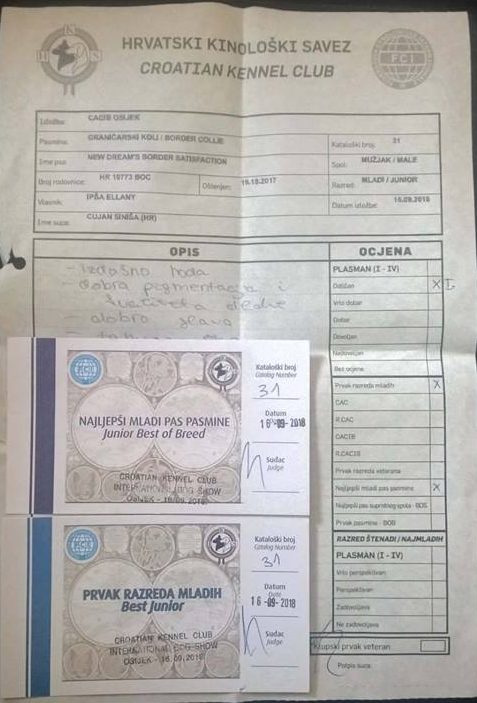 HRVATSKI KINOLOŠKI SAVEZ
CROATIAN KENNEL CLUB
H K S
FCI
Izložba: CACIB OSIJEK
Pasmina: GRANIČARSKI KOLI / BORDER COLLIE
Kataloški broj: 31
Ime psa: NEW DREAM'S BORDER SATISFACTION
Spol: MUŽJAK / MALE
Broj rodovnice: HR 10773 BOC
Oštenjen:
Razred: MLADI / JUNIOR
Vlasnik: IPŠA ELLANY
Datum izložbe: 16.09.2018
Ime suca: CUJAN SINIŠA (HR)
OPIS
OCJENA
- izdašno hoda
- dobra pigmentacija i
- dobra glava
PLASMAN (I - IV)
Odličan X I
Vrlo dobar
Dobar
Dovoljan
Nedovoljan
Bez ocjene
Prvak razreda mladih X
CAC
R.CAC
CACIB
R.CACIB
Prvak razreda veterana
Najljepši mladi pas pasmine X
Najljepši pas suprotnog spola - BOS
Prvak pasmine - BOB
RAZRED ŠTENADI / NAJMLAĐIH
PLASMAN (I - IV)
Vrlo perspektivan
Perspektivan
Zadovoljava
Ne zadovoljava
Klupski prvak veteran
Potpis suca:
NAJLJEPŠI MLADI PAS PASMINE
Junior Best of Breed
CROATIAN KENNEL CLUB
INTERNATIONAL DOG SHOW
OSIJEK - 16.09.2018.
Kataloški broj
Catalog Number
31
Datum
16-09-2018
Sudac
Judge
PRVAK RAZREDA MLADIH
Best Junior
CROATIAN KENNEL CLUB
INTERNATIONAL DOG SHOW
OSIJEK - 16.09.2018
Kataloški broj
Catalog Number
31
Datum
Date
16-09-2018
Sudac
Judge